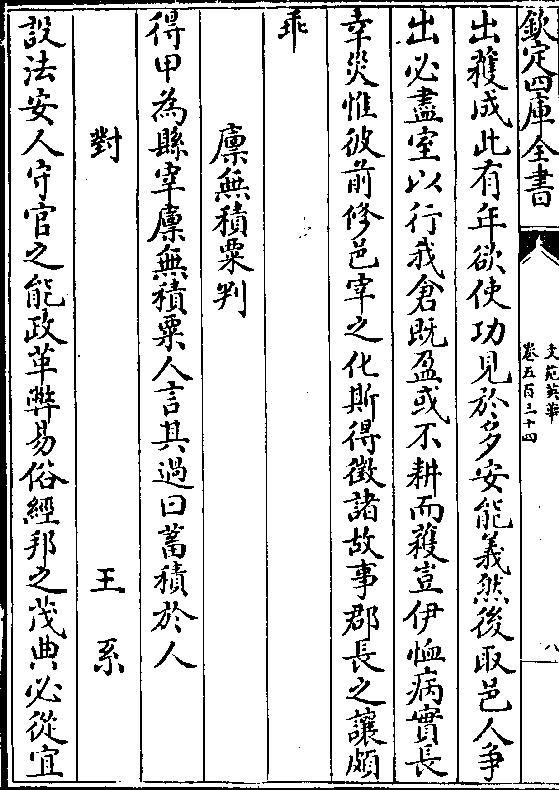 欽定四庫全書
文苑英華
卷五百三十四
八
出穫成此有年欲使功見於多安能義然後取邑人爭
出必盡室以行我倉既盈或不耕而穫豈伊恤病實長
幸災惟彼前修邑宰之化斯得徵諸故事郡長之讓頗
乖
廩無積粟判
得甲為縣宰廩無積粟人言其過曰蓄積於人
對 王系
設法安人守官之能政革弊易俗經邦之茂典必從宜